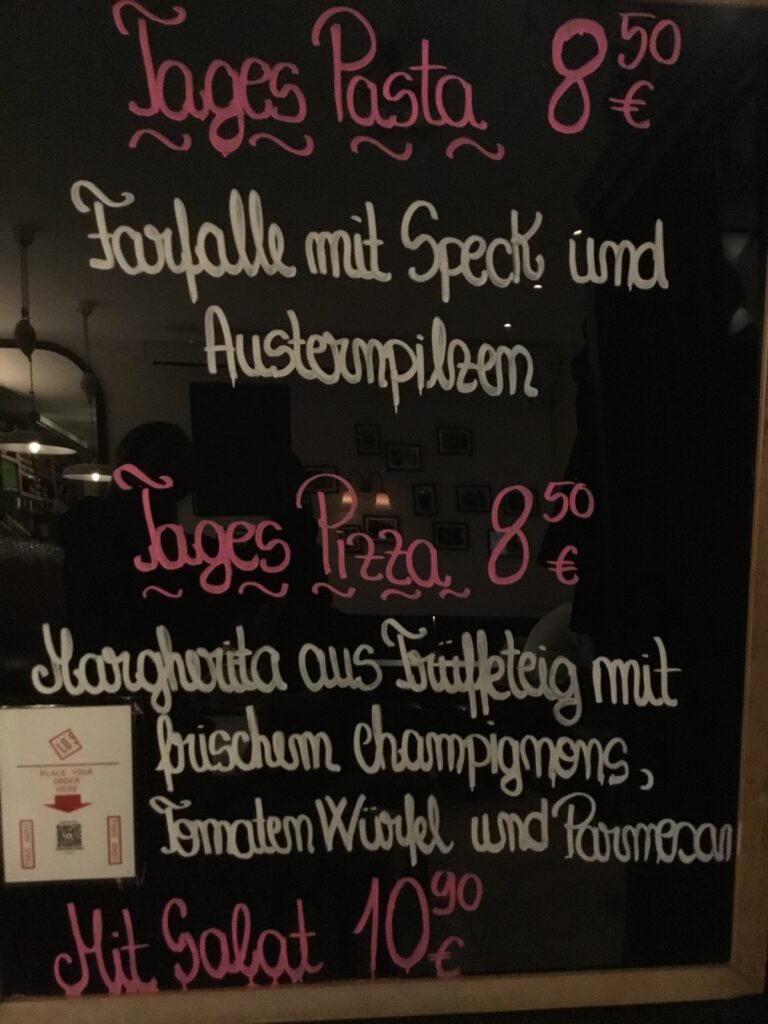 Tages Pasta 8 50 €
Farfalle mit Speck und
Austernpilzen
Tages Pizza 8 50 €
Margherita aus Trüffeteig mit
frischem Champignons,
Tomaten Würfel und Parmesan
PLACE YOUR
ORDER
HERE
Mit Salat 10 90 €